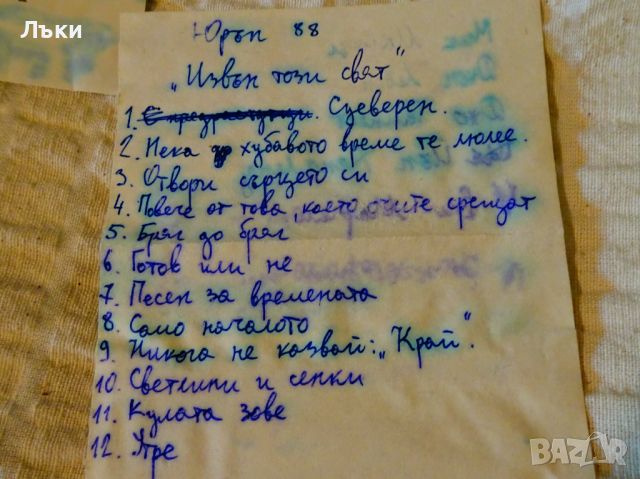 Лъки
Юръп 88
„Извън този свят"
1. Суеверен.
2. Нека хубавото време те люлее.
3. Отвори сърцето си
4. Повече от това, което очите срещат
5. Бряг до бряг
6. Готов или не
7. Песен за времената
8. Само началото
9. Никога не казвай: „Край".
10. Светлини и сенки
11. Кулата зове
12. Утре
BAZAR
bg